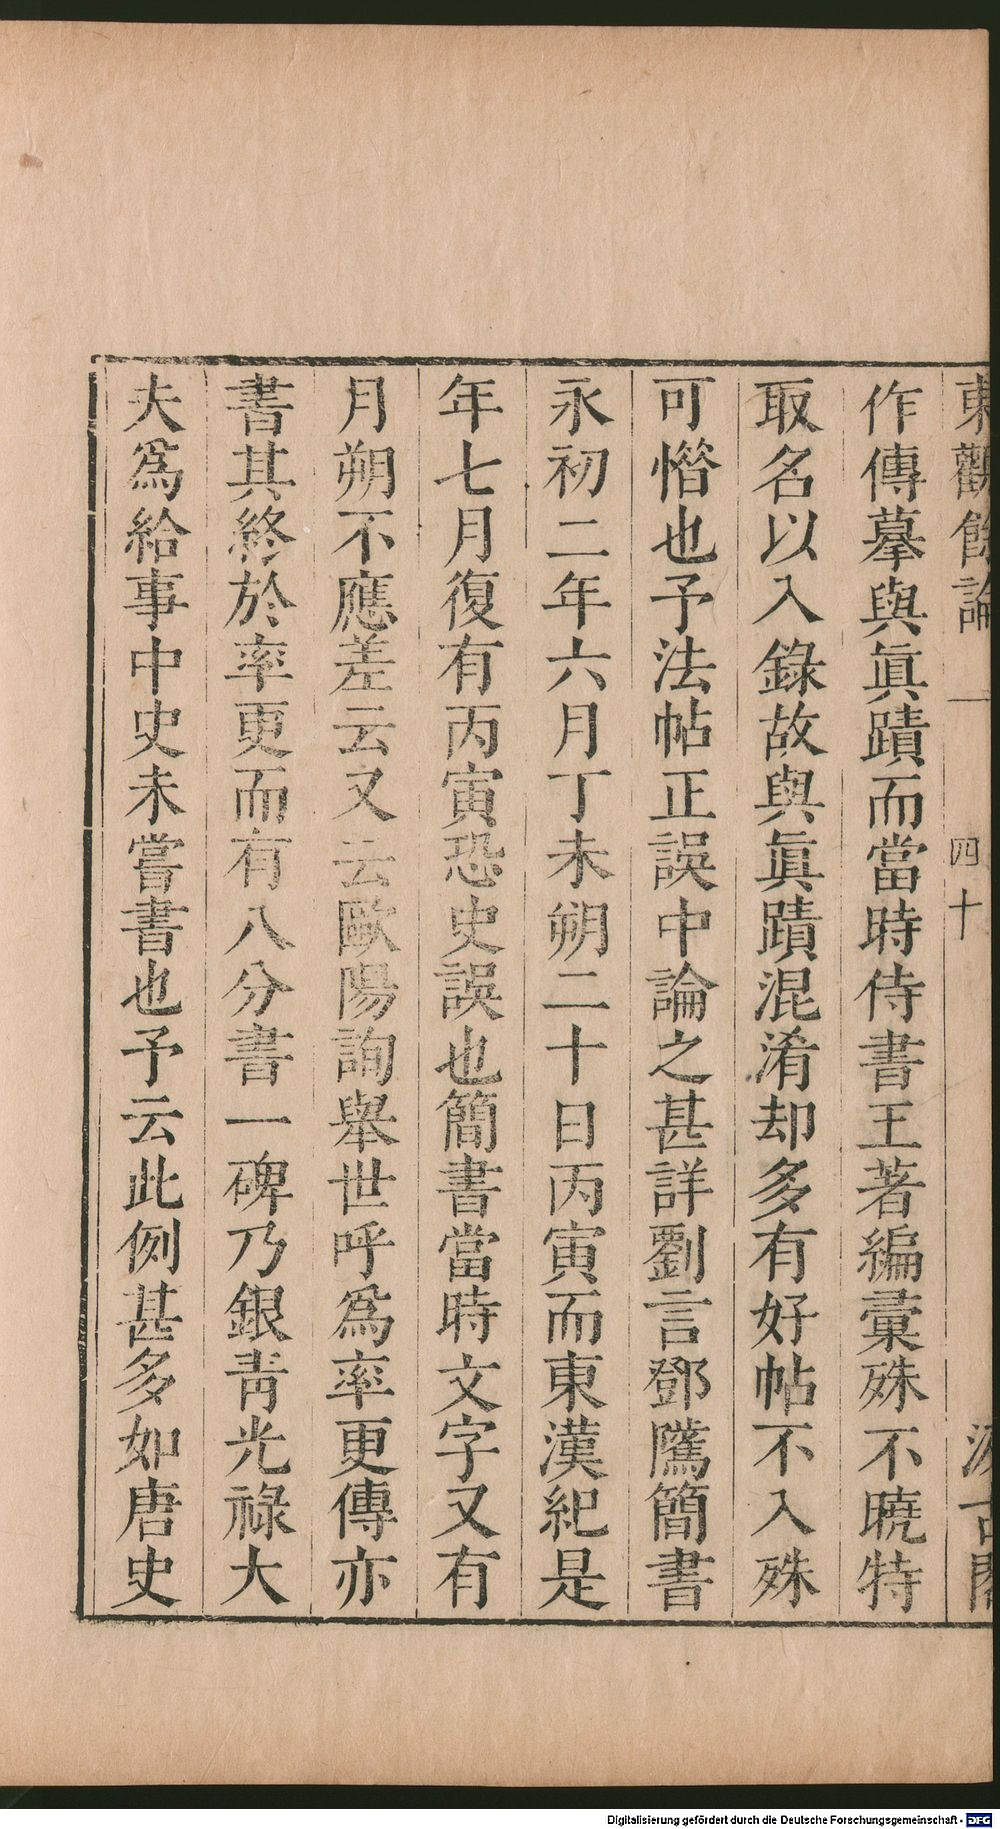 東觀餘論 一 四十 汲古閣
作傳摹與眞蹟而當時侍書王著編彙殊不曉特
取名以入錄故與眞蹟混淆却多有好帖不入殊
可憯也予法帖正誤中論之甚詳劉言鄧騭簡書
永初二年六月丁未朔二十日丙寅而東漢紀是
年七月復有丙寅恐史誤也簡書當時文字又有
月朔不應差云又云歐陽詢舉世呼爲率更傳亦
書其終於率更而有八分書一碑乃銀靑光祿大
夫爲給事中史未嘗書也予云此例甚多如唐史
Digitalisierung gefördert durch die Deutsche Forschungsgemeinschaft - DFG